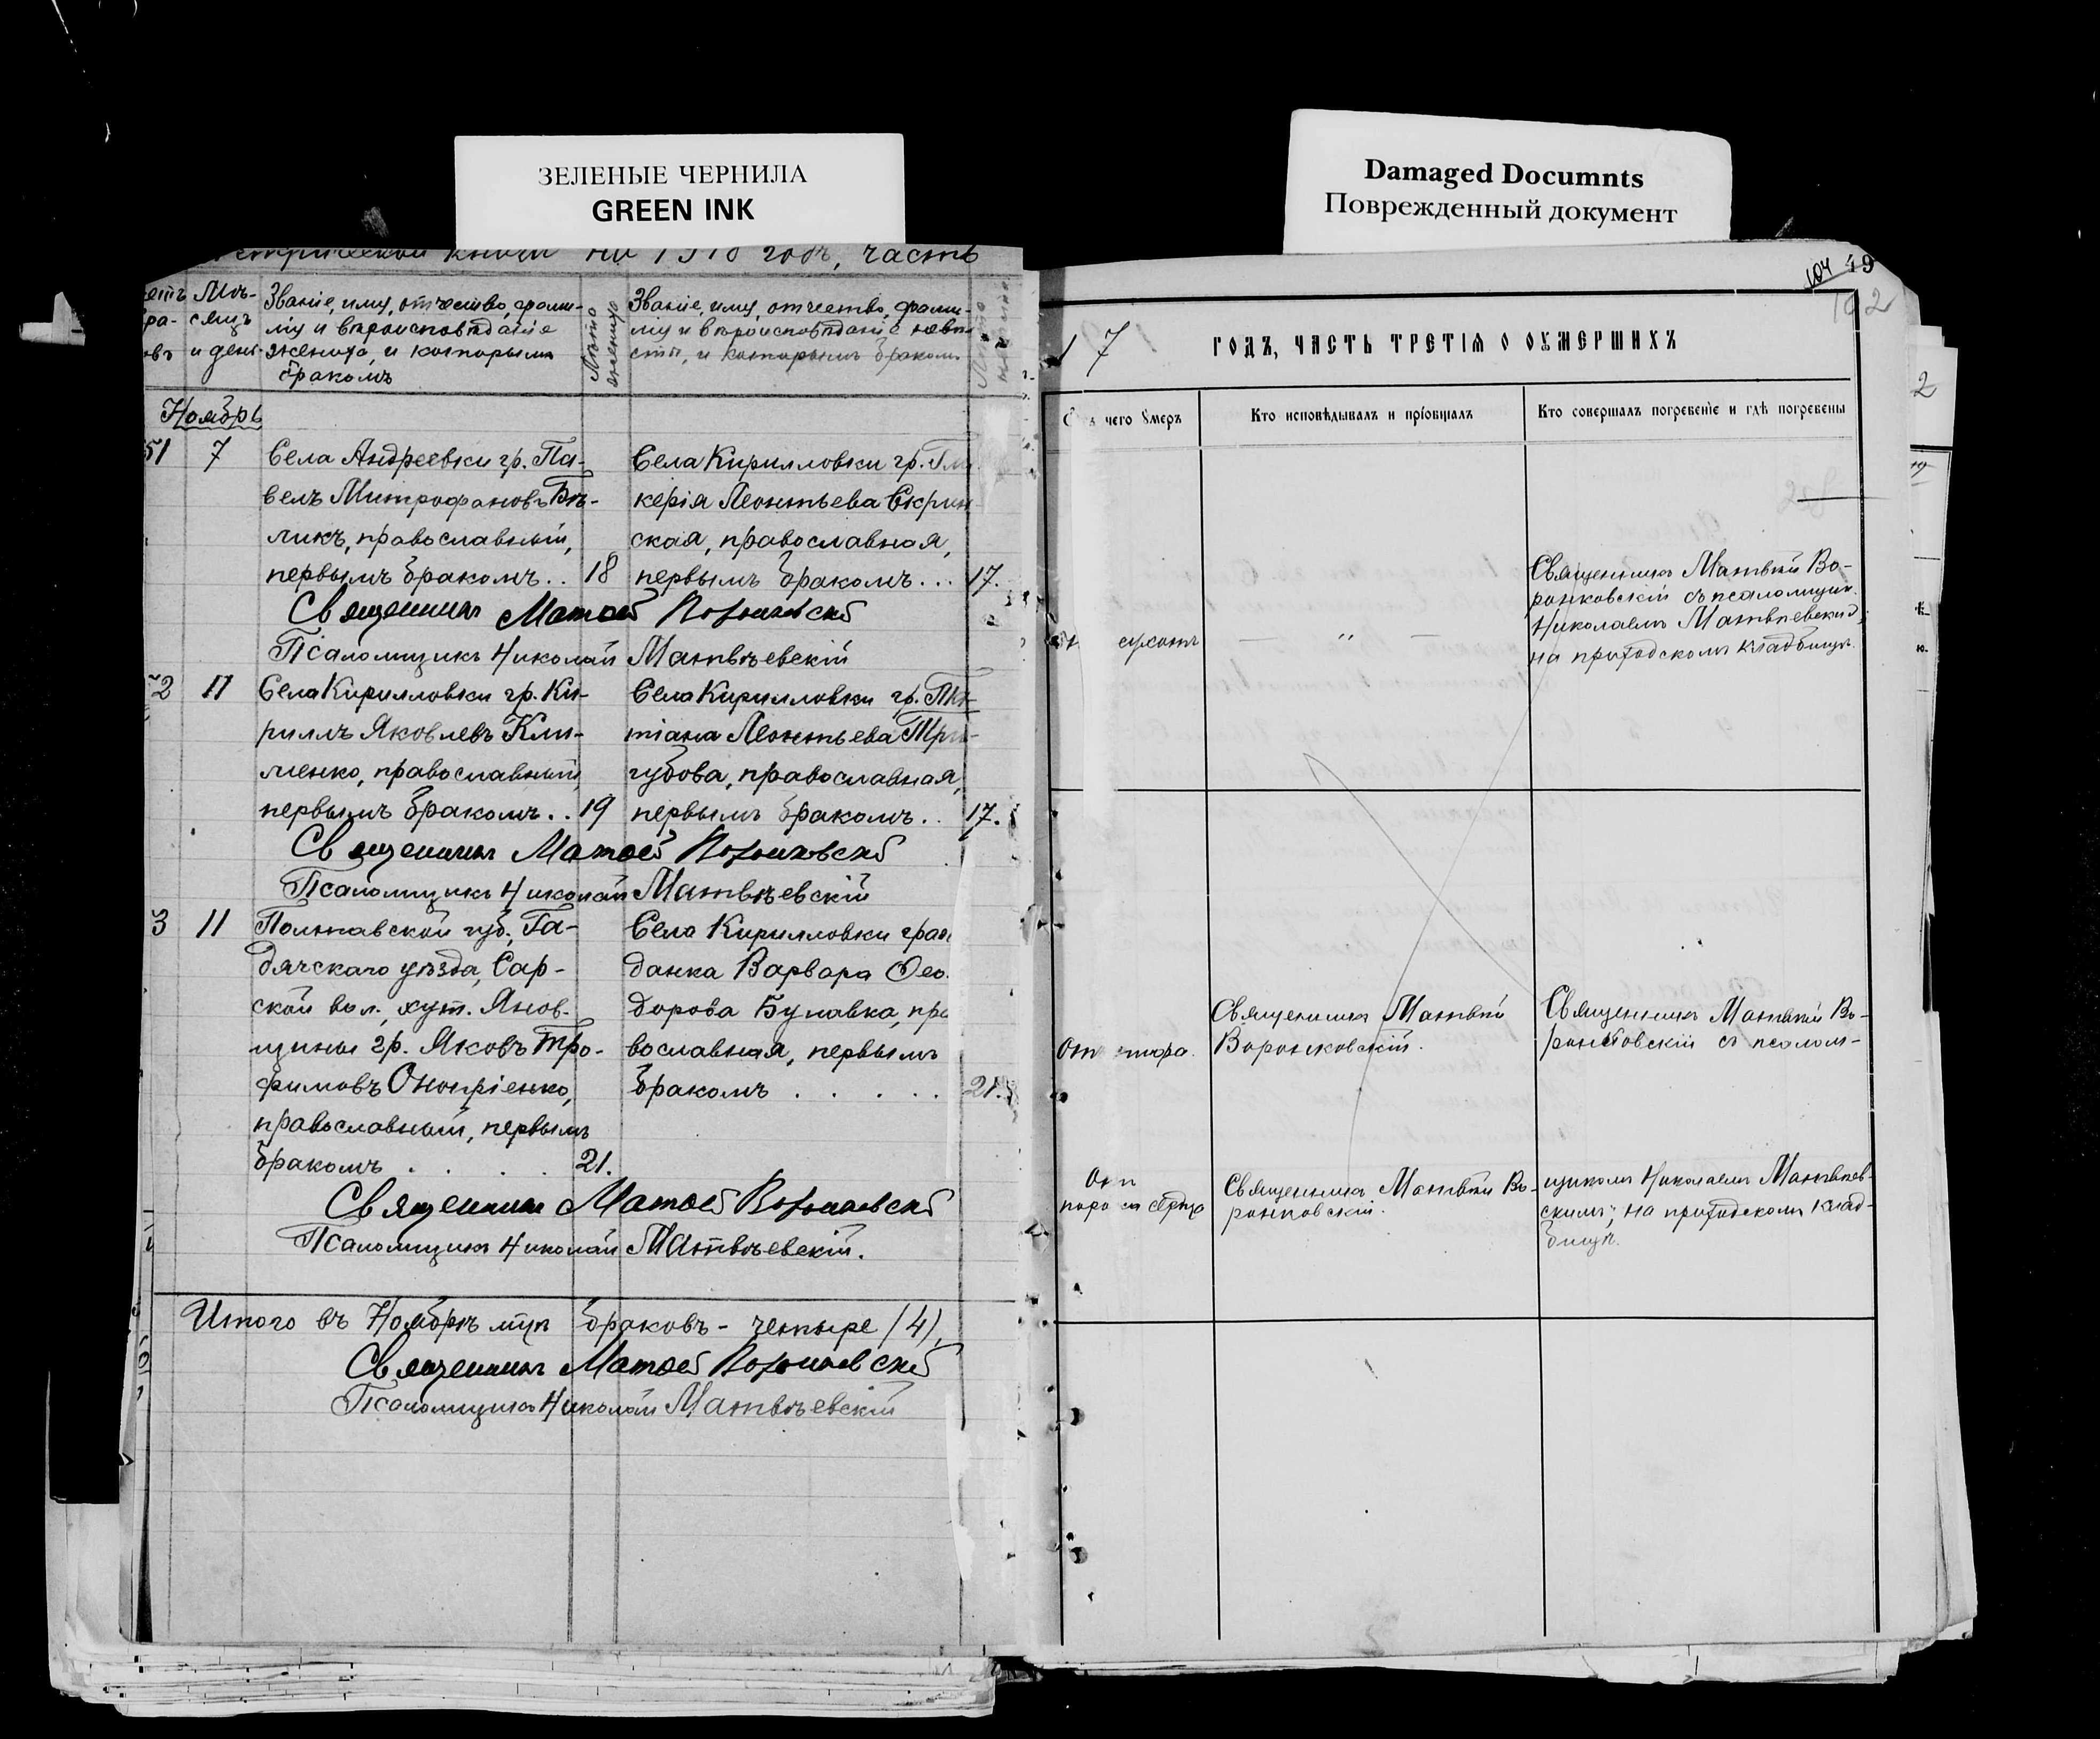 ЗЕЛЕНЫЕ ЧЕРНИЛА
GREEN INK
Damaged Documnts
Поврежденный документ
годъ, часть
Мѣ-
сяцъ
и день
Званіе, имя, отчество, фами-
лія и вѣроисповѣданіе
жениха, и которымъ
бракомъ
Лѣта
жениха
Званіе, имя, отчество, фами-
лія и вѣроисповѣданіе невѣ-
сты, и которымъ бракомъ
Ноябрь
51 7 Села Андреевки гр. Па-
велъ Митрофановъ Бѣ-
ликъ, православный,
первымъ бракомъ.. 18
Села Кирилловки гр.
керія Леонтьева Скрин
ская, православная,
первымъ бракомъ... 17.
Священникъ Матѳей Воронковскій
Псаломщикъ Николай Матвѣевскій
2 11 Села Кирилловки гр. Ки-
риллъ Яковлевъ Кли-
менко, православный,
первымъ бракомъ.. 19
Села Кирилловки гр.
тіана Леонтьева Три-
губова, православная,
первымъ бракомъ.. 17.
Священникъ Матѳей Воронковскій
Псаломщикъ Николай Матвѣевскій
3 11 Полтавской губ., Га-
дячскаго уѣзда, Сар-
ской вол., хут. Янов-
щины гр. Яковъ Тро-
фимовъ Онопріенко,
православный, первымъ
бракомъ . . . . 21.
Села Кирилловки граж
данка Варвара Ѳео-
дорова Булавка, пра
вославная, первымъ
бракомъ . . . . . 21.
Священникъ Матѳей Воронковскій
Псаломщикъ Николай Матвѣевскій.
Итого въ Ноябрѣ м-цѣ браковъ - четыре (4).
Священникъ Матѳей Воронковскій
Псаломщикъ Николай Матвѣевскій
104 49
102
1 7 ГОДЪ, ЧАСТЬ ТРЕТІЯ О ОУМЕРШИХЪ
чего умеръ
Кто исповѣдывалъ и пріобщалъ
Кто совершалъ погребеніе и гдѣ погребены
сухотъ
— „ —
Священникъ Матвѣй Во-
ронковскій съ псаломщик.
Николаемъ Матвѣевскимъ,
на приходскомъ кладбищѣ.
Священникъ Матвѣй
Воронковскій.
Священникъ Матвѣй Во-
ронковскій съ псалом-
сердца
Священникъ Матвѣй Во-
ронковскій.
щикомъ Николаемъ Матвѣев-
скимъ; на приходскомъ клад-
бищѣ.
2